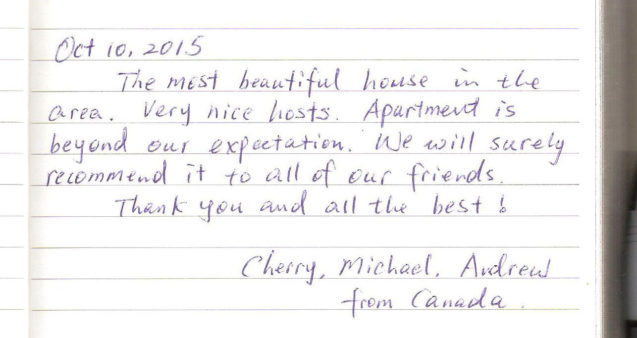 Oct 10, 2015
The most beautiful house in the
area. Very nice hosts. Apartment is
beyond our expectation. We will surely
recommend it to all of our friends.
Thank you and all the best !
Cherry, Michael, Andrew
from Canada.